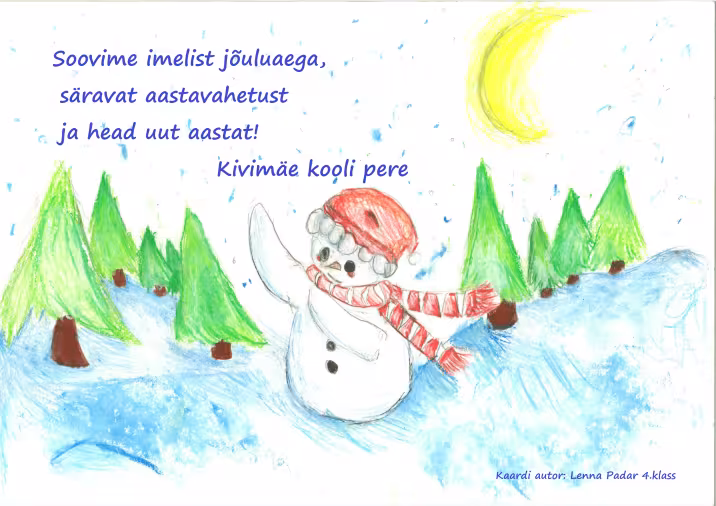 Soovime imelist jõuluaega,
säravat aastavahetust
ja head uut aastat!
Kivimäe kooli pere
Kaardi autor: Lenna Padar 4.klass